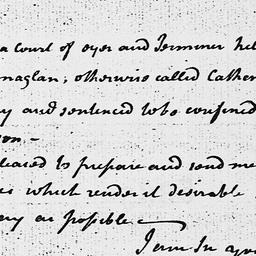 a Court of oyer and Terminer hel
naglan, otherwise called Cather
ny and sentenced to be confined
on.—
leased to prepare and send me
which render it desirable
ny as possible —
I am Sir you